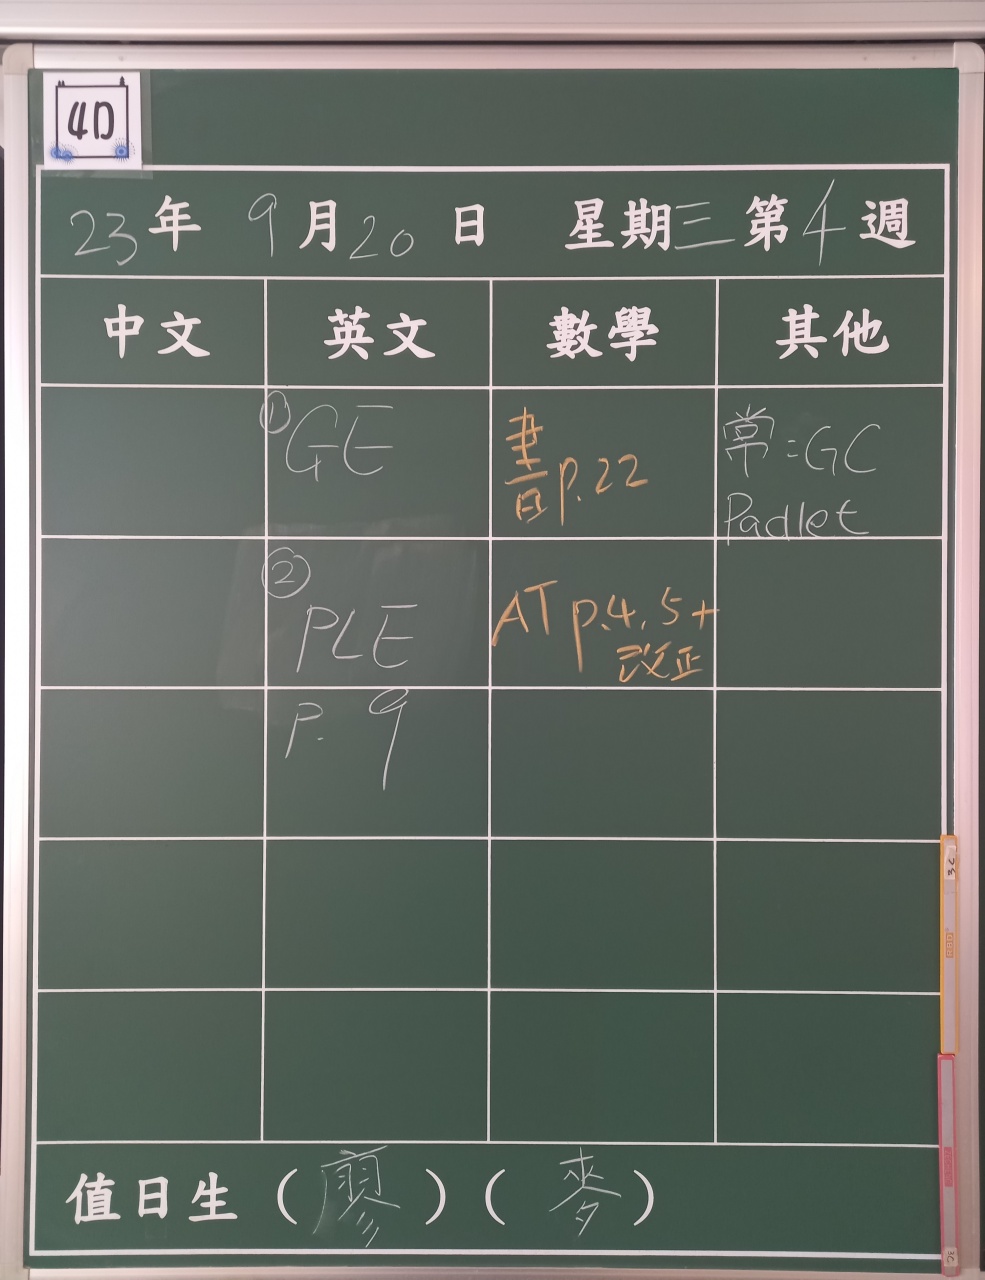 4D
23年 9月20日 星期三第4週
中文 英文 數學 其他
① GE
書p.22
常:GC
Padlet
② PLE
P. 9
AT p.4, 5+
改正
值日生(廖)(麥)
3C